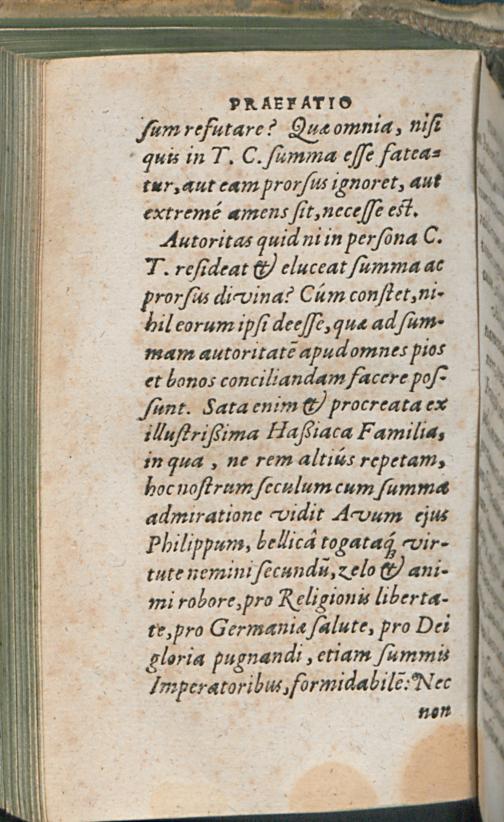 PRAEFATIO
ſum refutare? Quæ omnia, niſi
quis in T. C. ſumma eſſe fatea=
tur, aut eam prorſus ignoret, aut
extremé amens ſit, neceſſe eſt.
Autoritas quid ni in perſona C.
T. reſideat & eluceat ſumma ac
prorſus divina? Cúm conſtet, ni-
hil eorum ipſi deeſſe, quæ ad ſum-
mam autoritatē apud omnes pios
et bonos conciliandam facere poſ-
ſunt. Sata enim & procreata ex
illuſtrißima Haßiaca Familia,
in qua, ne rem altiús repetam,
hoc noſtrum ſeculum cum ſumma
admiratione vidit Avum ejus
Philippum, bellicâ togataq́; vir-
tute nemini ſecundū, zelo & ani-
mi robore, pro Religionis liberta-
te, pro Germaniæ ſalute, pro Dei
gloria pugnandi, etiam ſummis
Imperatoribus, formidabilē: Nec
non